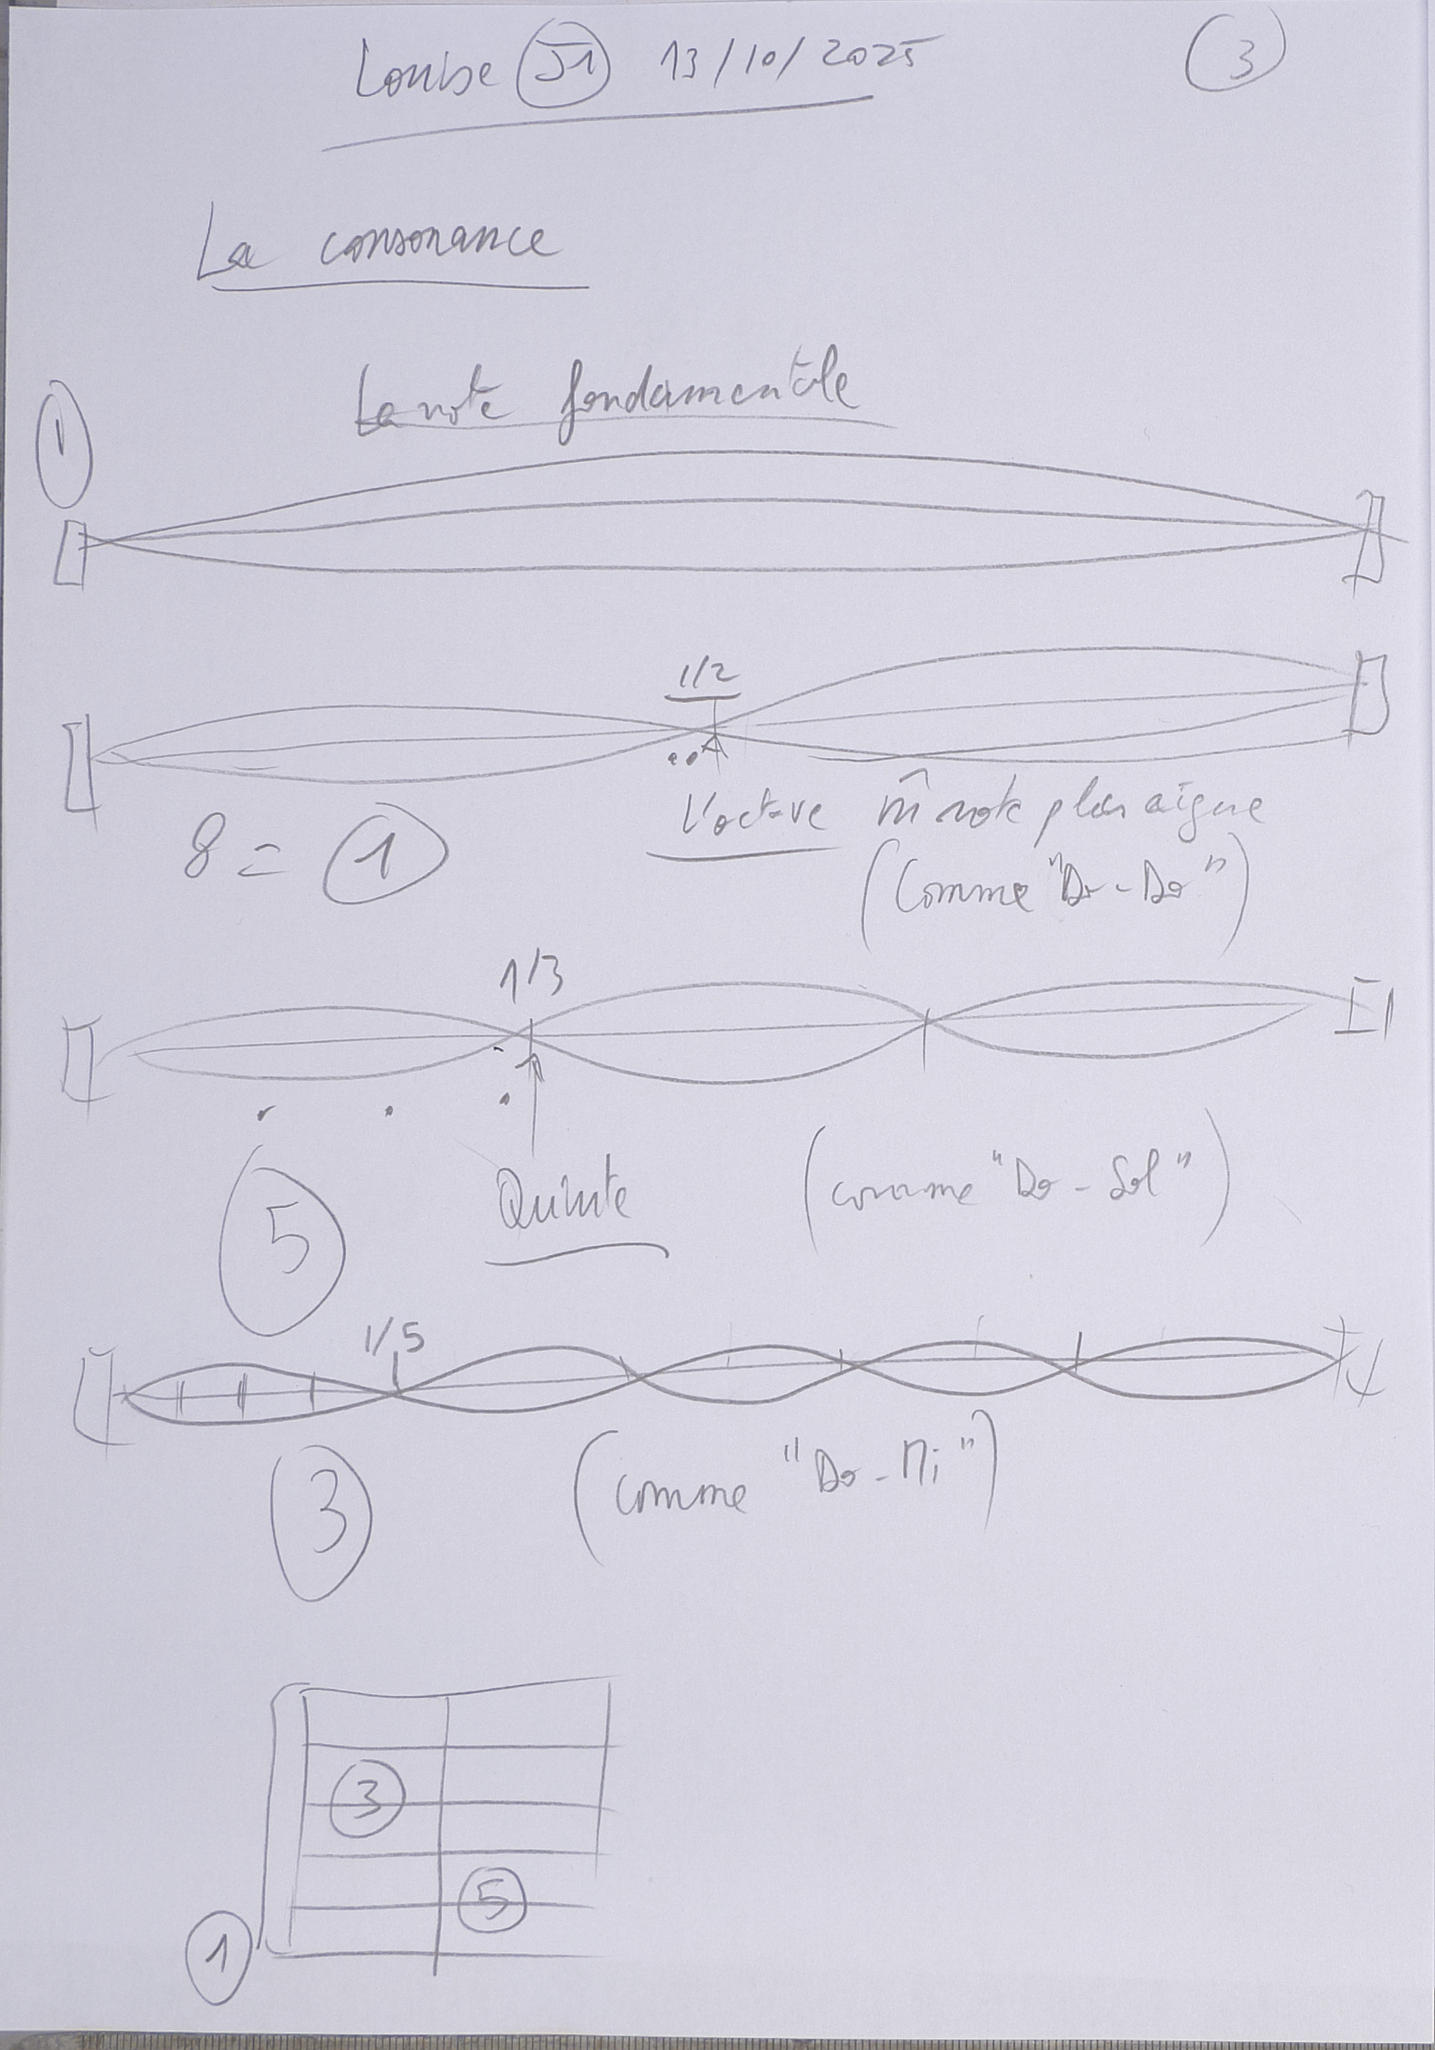 Louise J1 13/10/2025
3
La consonance
La note fondamentale
1
1/2
L'octave m̂ note plus aigue
8 = 1
(comme "Do - Do")
1/3
5
Quinte
(comme "Do - Sol")
1/5
3
(comme "Do - Mi")
3
5
1